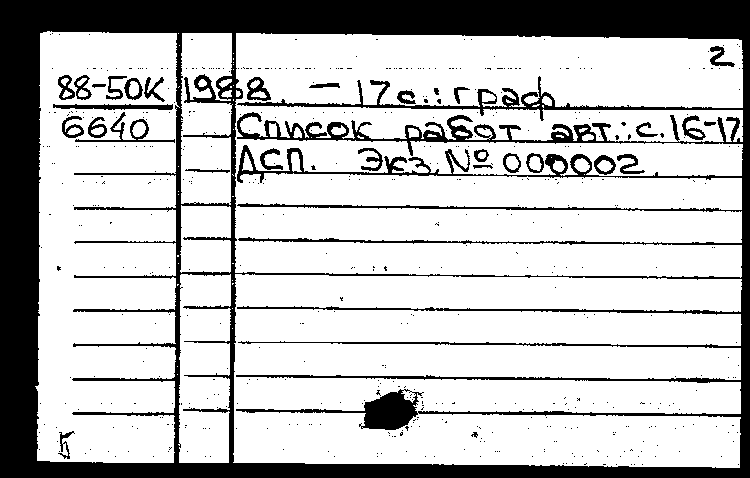 2
88-50К 1988. — 17 с.: граф.
6640 Список работ авт.: с. 16-17.
ДСП. Экз. № 000002.
Б